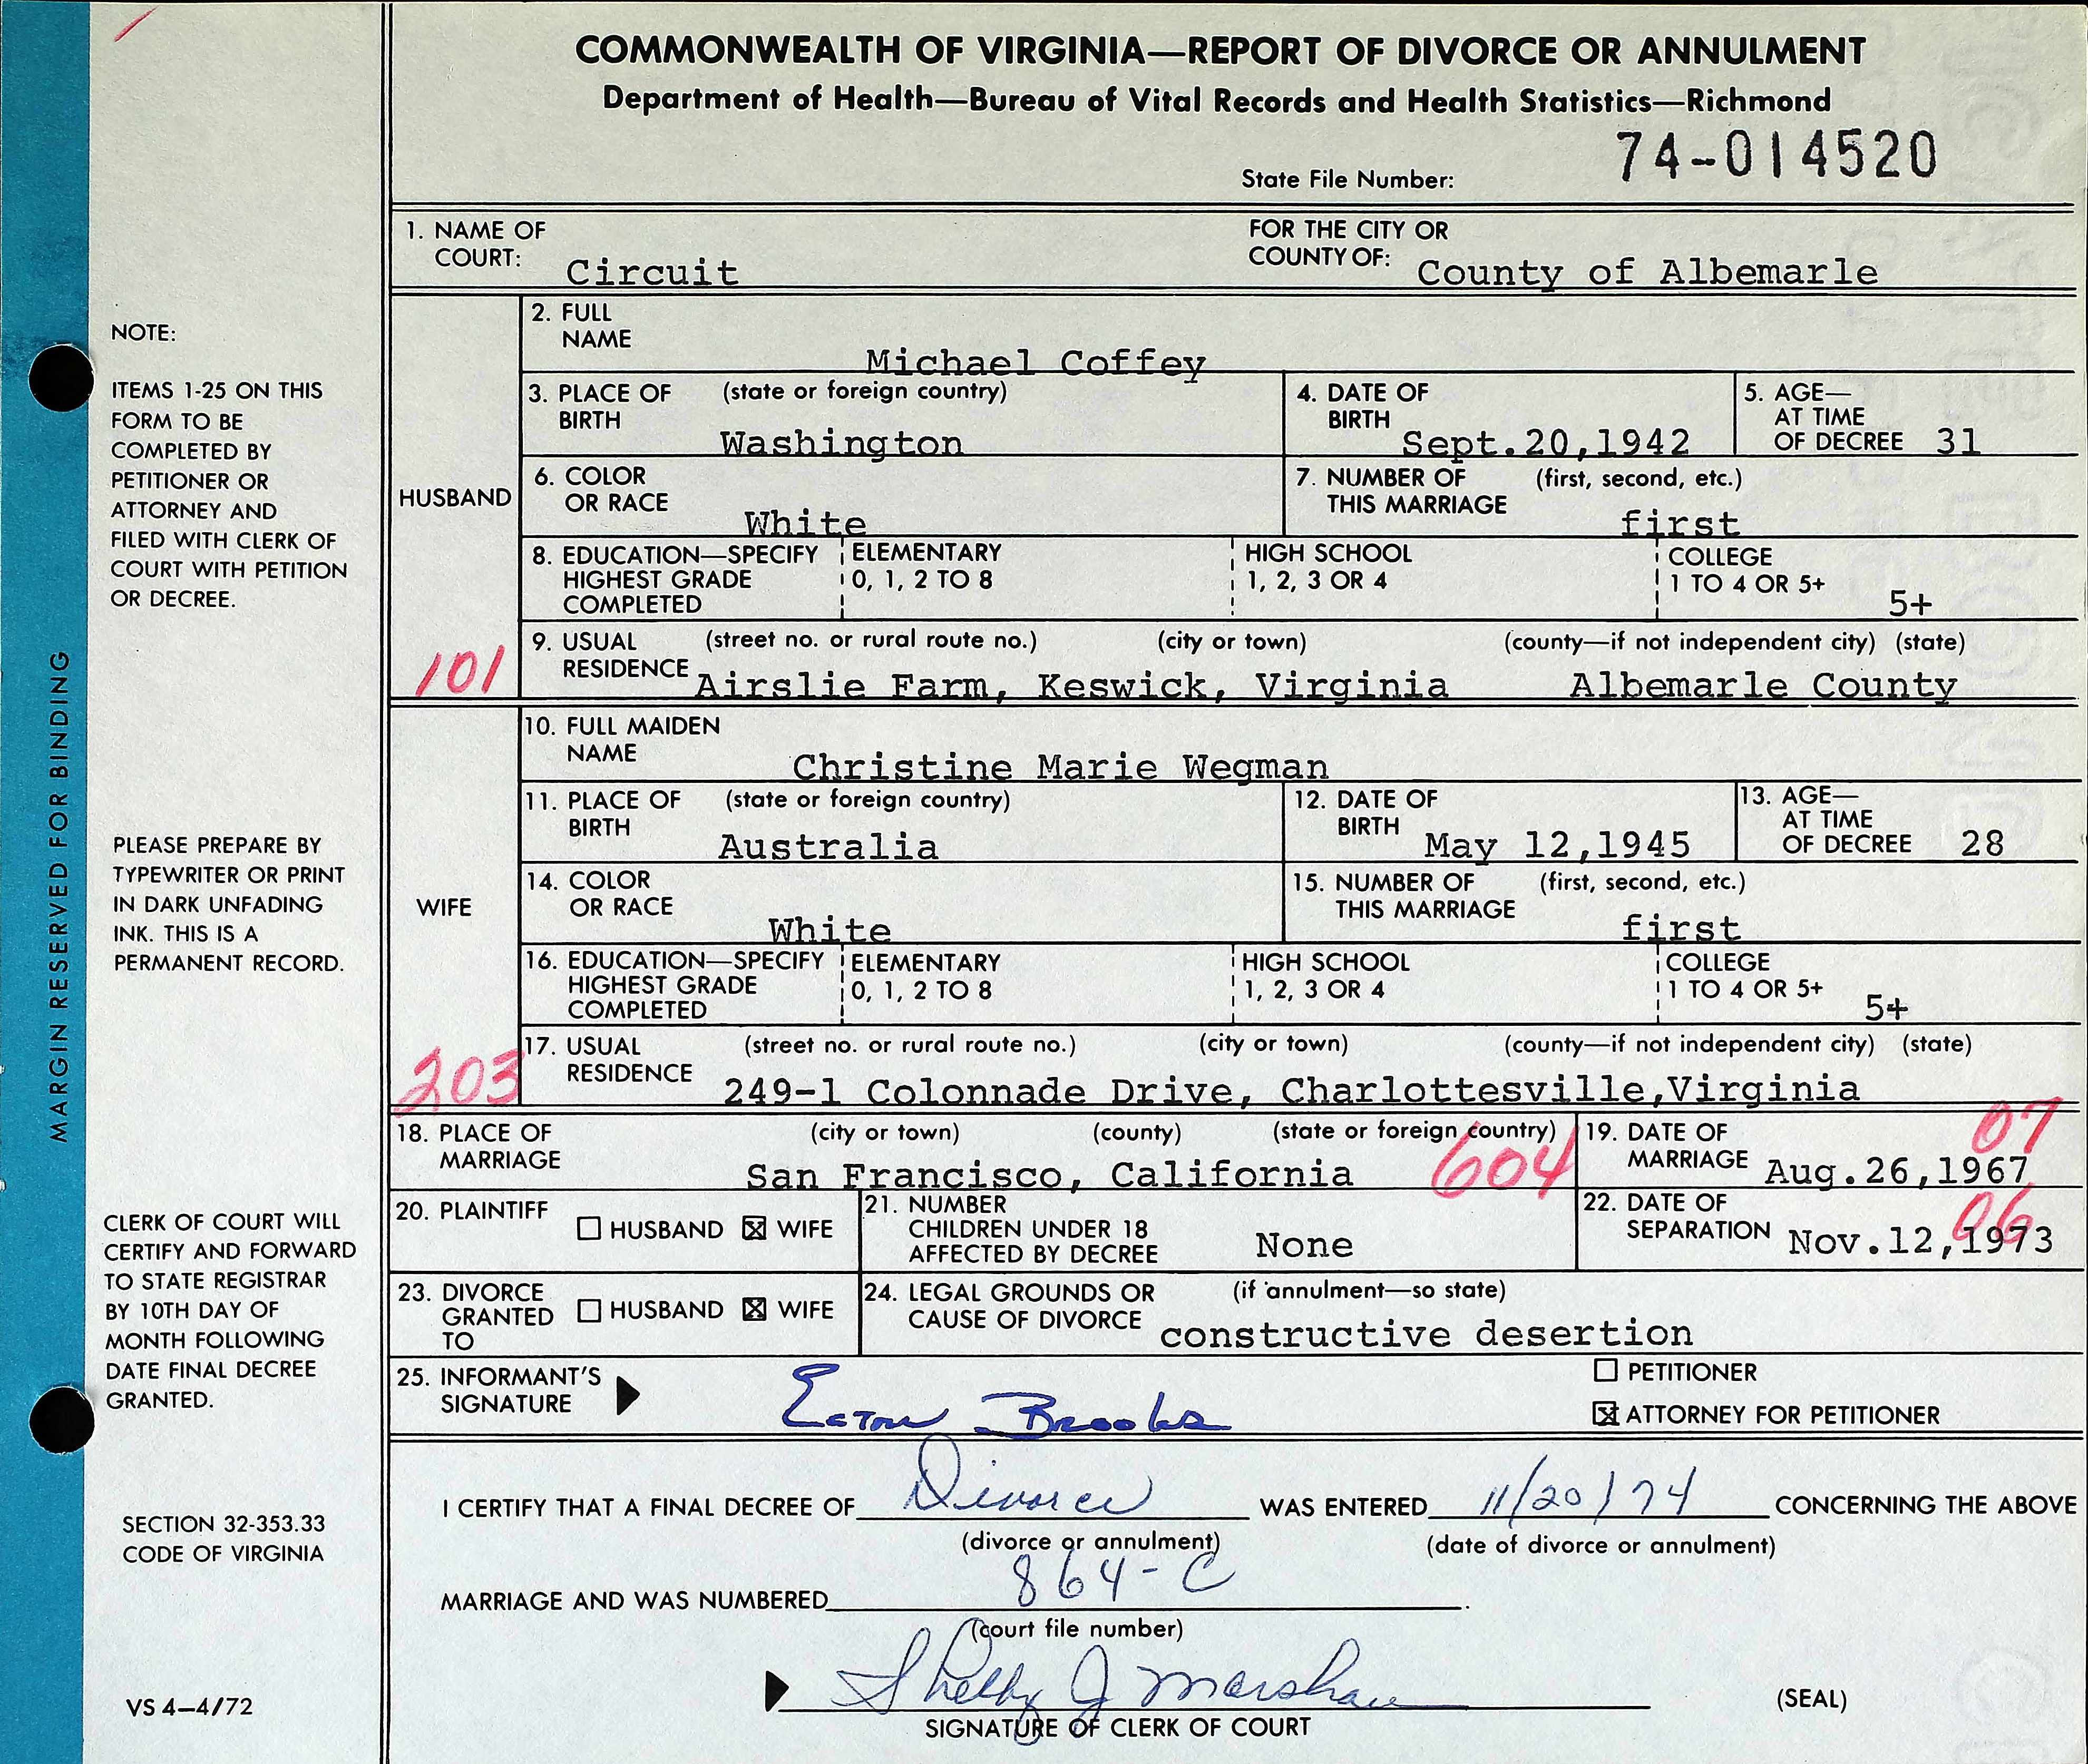 COMMONWEALTH OF VIRGINIA—REPORT OF DIVORCE OR ANNULMENT
Department of Health—Bureau of Vital Records and Health Statistics—Richmond
State File Number: 74-014520
1. NAME OF COURT: Circuit FOR THE CITY OR COUNTY OF: County of Albemarle
HUSBAND
2. FULL NAME Michael Coffey
3. PLACE OF BIRTH (state or foreign country) Washington
4. DATE OF BIRTH Sept.20,1942
5. AGE—AT TIME OF DECREE 31
6. COLOR OR RACE White
7. NUMBER OF THIS MARRIAGE (first, second, etc.) first
8. EDUCATION—SPECIFY HIGHEST GRADE COMPLETED ELEMENTARY 0, 1, 2 TO 8 HIGH SCHOOL 1, 2, 3 OR 4 COLLEGE 1 TO 4 OR 5+ 5+
9. USUAL RESIDENCE (street no. or rural route no.) (city or town) (county—if not independent city) (state)
101 Airslie Farm, Keswick, Virginia Albemarle County
WIFE
10. FULL MAIDEN NAME Christine Marie Wegman
11. PLACE OF BIRTH (state or foreign country) Australia
12. DATE OF BIRTH May 12,1945
13. AGE—AT TIME OF DECREE 28
14. COLOR OR RACE White
15. NUMBER OF THIS MARRIAGE (first, second, etc.) first
16. EDUCATION—SPECIFY HIGHEST GRADE COMPLETED ELEMENTARY 0, 1, 2 TO 8 HIGH SCHOOL 1, 2, 3 OR 4 COLLEGE 1 TO 4 OR 5+ 5+
17. USUAL RESIDENCE (street no. or rural route no.) (city or town) (county—if not independent city) (state)
203 249-1 Colonnade Drive, Charlottesville,Virginia
18. PLACE OF MARRIAGE (city or town) (county) (state or foreign country) San Francisco, California 604
19. DATE OF MARRIAGE Aug.26,1967 07
20. PLAINTIFF HUSBAND WIFE
21. NUMBER CHILDREN UNDER 18 AFFECTED BY DECREE None
22. DATE OF SEPARATION Nov.12,1973 06
23. DIVORCE GRANTED TO HUSBAND WIFE
24. LEGAL GROUNDS OR CAUSE OF DIVORCE (if annulment—so state) constructive desertion
25. INFORMANT'S SIGNATURE Eaton Brooks
PETITIONER
ATTORNEY FOR PETITIONER
I CERTIFY THAT A FINAL DECREE OF Divorce WAS ENTERED 11/20/74 CONCERNING THE ABOVE
(divorce or annulment) (date of divorce or annulment)
MARRIAGE AND WAS NUMBERED 864-C.
(court file number)
Shelby J Marshall
SIGNATURE OF CLERK OF COURT
(SEAL)
MARGIN RESERVED FOR BINDING
NOTE:
ITEMS 1-25 ON THIS
FORM TO BE
COMPLETED BY
PETITIONER OR
ATTORNEY AND
FILED WITH CLERK OF
COURT WITH PETITION
OR DECREE.
PLEASE PREPARE BY
TYPEWRITER OR PRINT
IN DARK UNFADING
INK. THIS IS A
PERMANENT RECORD.
CLERK OF COURT WILL
CERTIFY AND FORWARD
TO STATE REGISTRAR
BY 10TH DAY OF
MONTH FOLLOWING
DATE FINAL DECREE
GRANTED.
SECTION 32-353.33
CODE OF VIRGINIA
VS 4—4/72